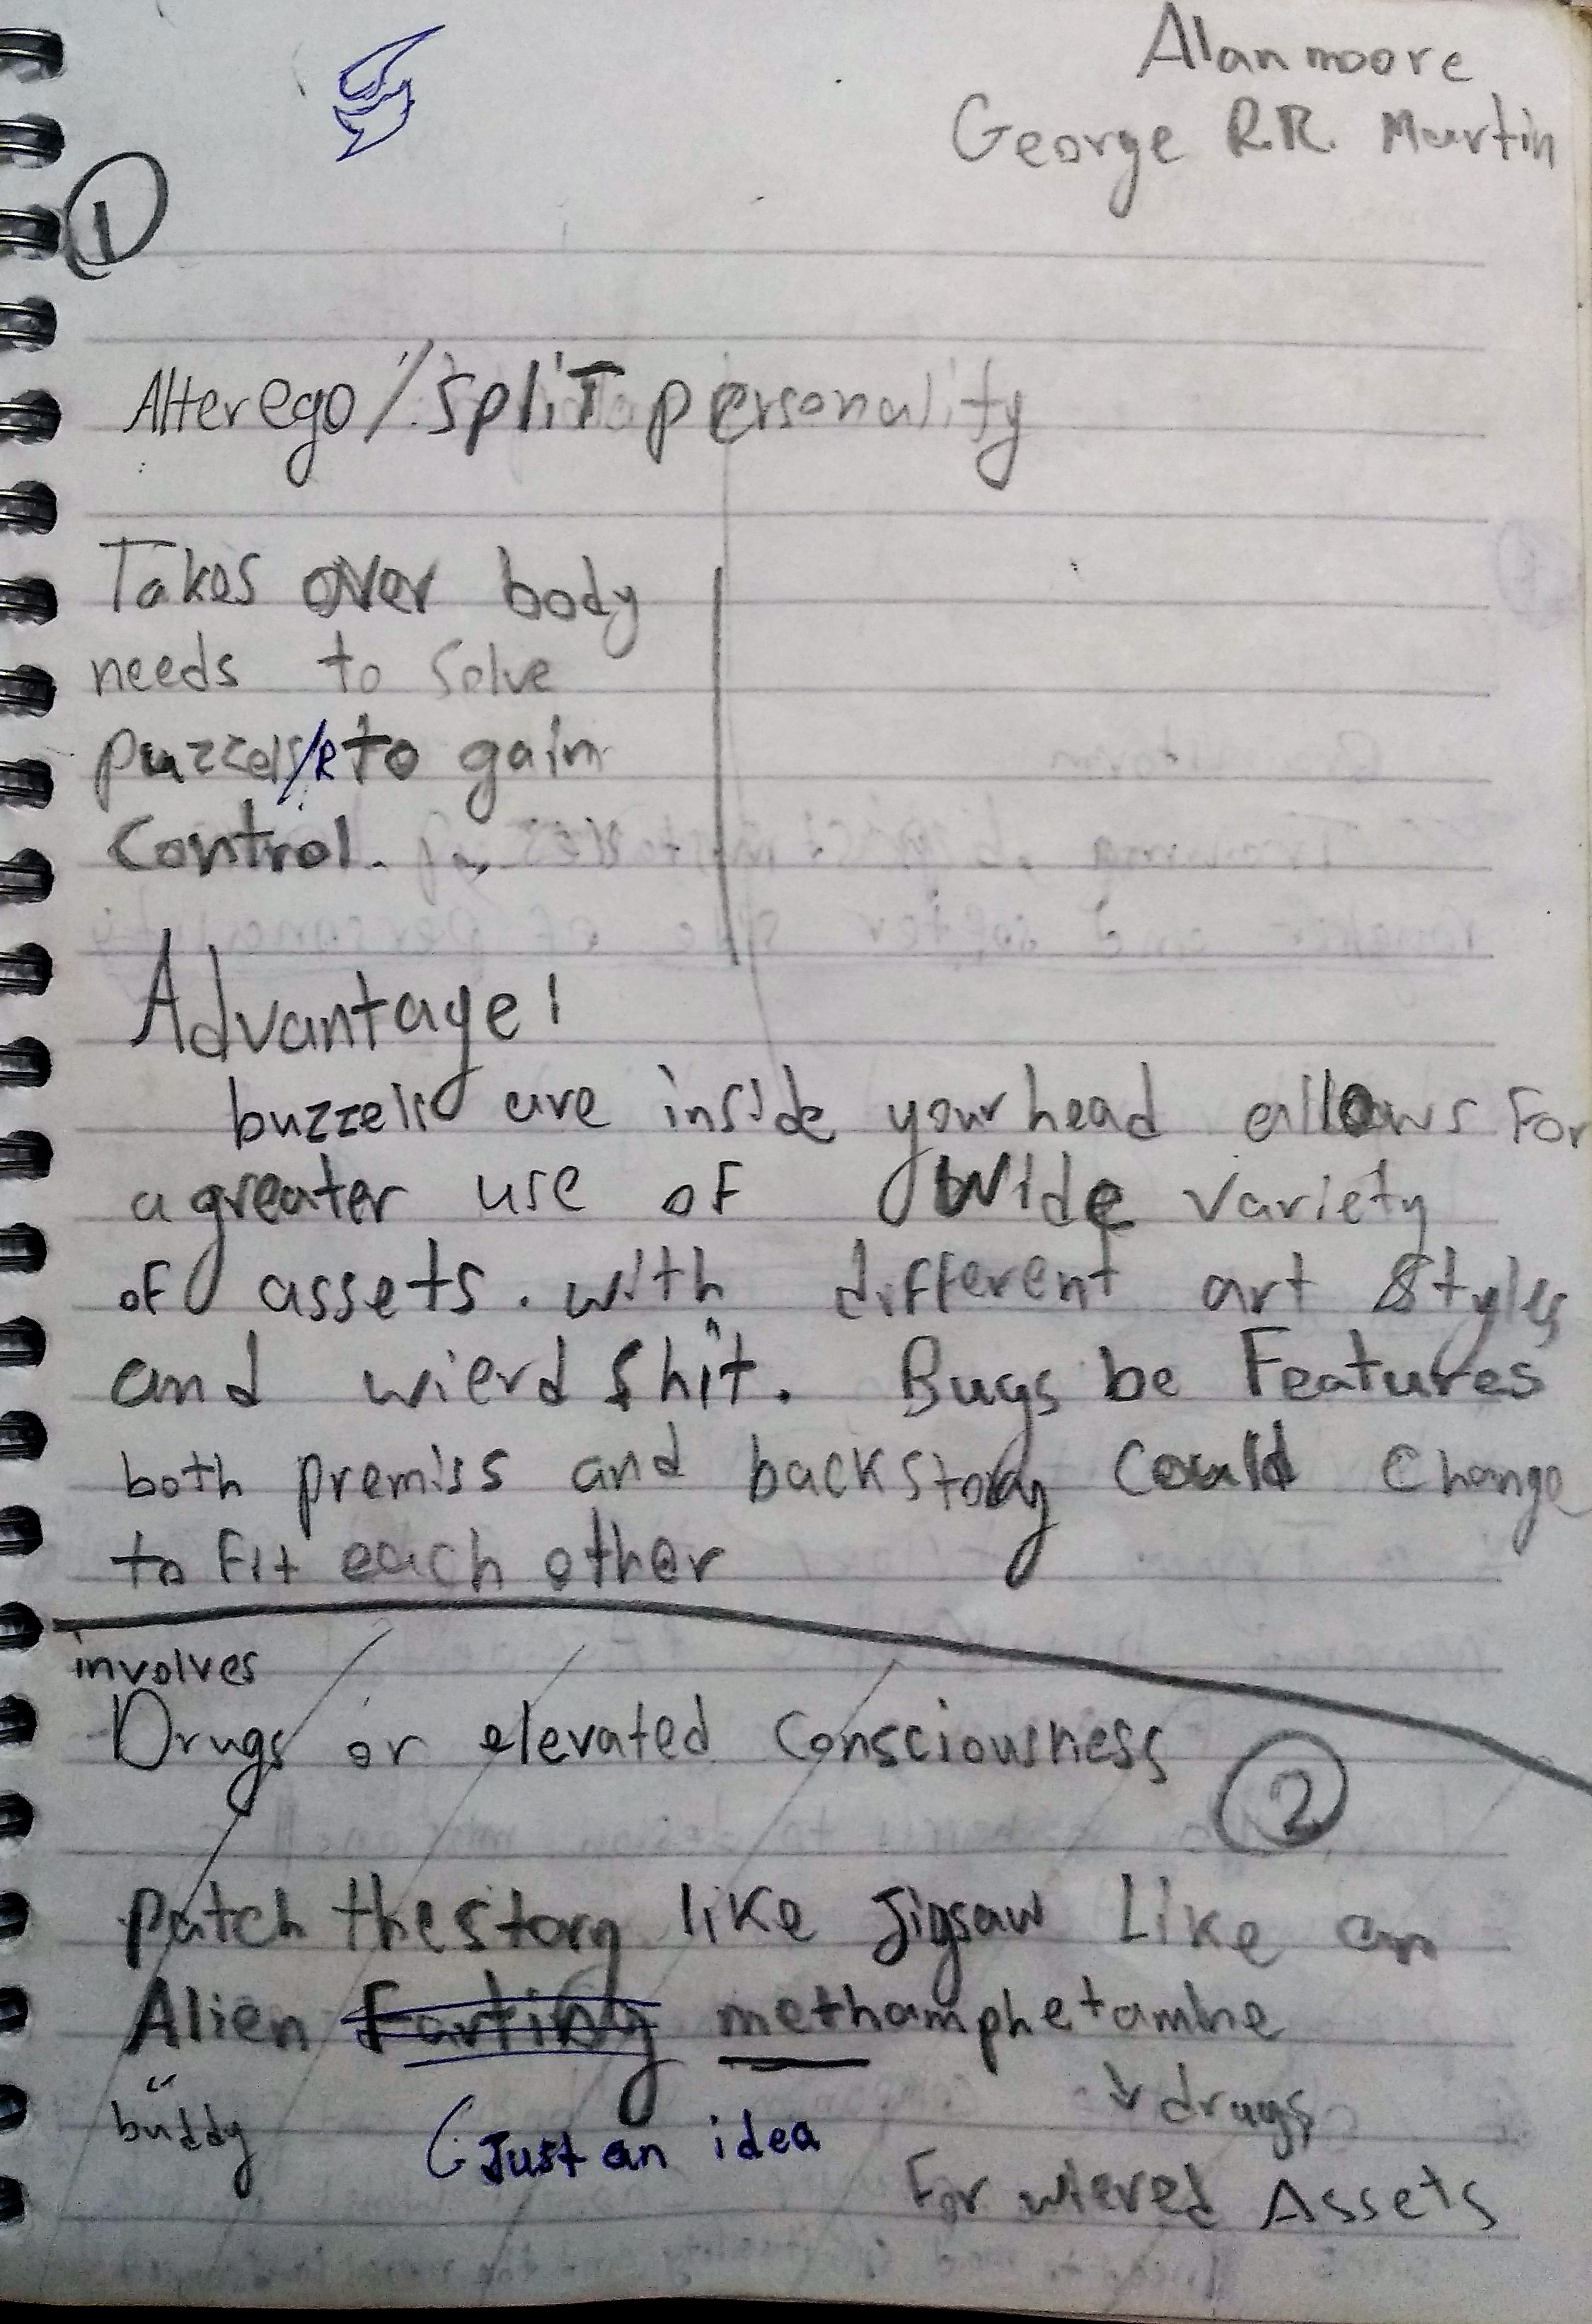 Alan moore
George R.R. Martin
1
Alter ego / split personality
Takes over body
needs to solve
puzzels/R to gain
Control.
Advantage!
buzzels are inside your head allows For
a greater use of wide variety
of assets. with different art styles
and wierd shit. Bugs be Features
both premiss and backstory could change
to Fit each other
involves
Drugs or elevated Consciousness
2
patch the story like Jigsaw Like an
Alien Farting methamphetamine
buddy
drugs
(Just an idea
For wiered Assets